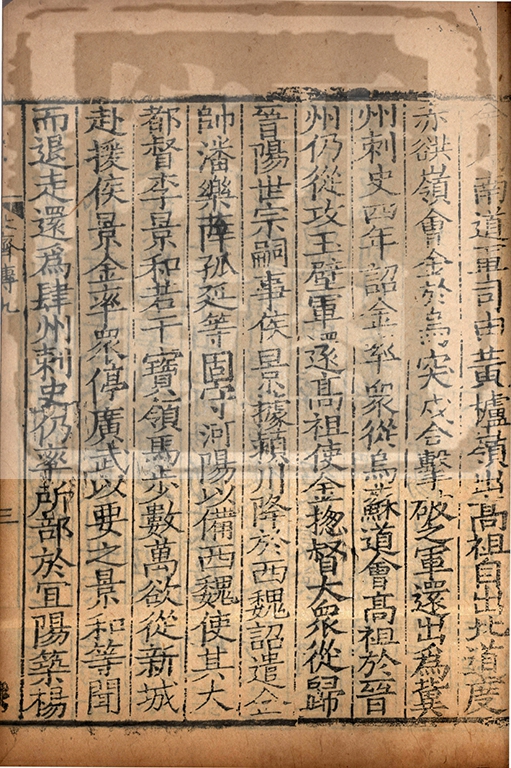 南道軍司由黃櫨嶺出高祖自出北道度
赤谼嶺會金於烏突戍合擊破之軍還出為冀
州刺史四年詔金率眾從烏蘇道會高祖於晉
州仍從攻玉壁軍還高祖使金揔督大眾從歸
晉陽世宗嗣事侯景據潁川降於西魏詔遣金
帥潘樂薛孤延等固守河陽以備西魏使其大
都督李景和若干寶領馬步數萬欲從新城
赴援侯景金率眾停廣武以要之景和等聞
而退走還為肆州刺史仍率所部於宜陽築楊